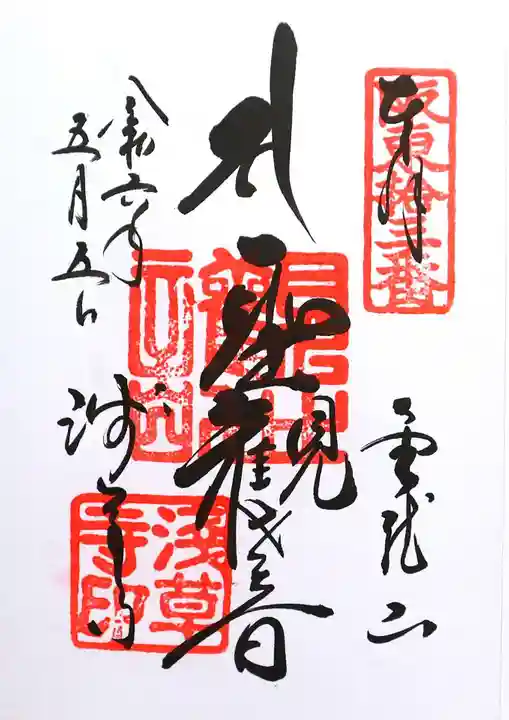 奉拝
坂東拾三番
金龍山
聖觀世音
令和六年
五月五日
浅草寺
淺草寺印